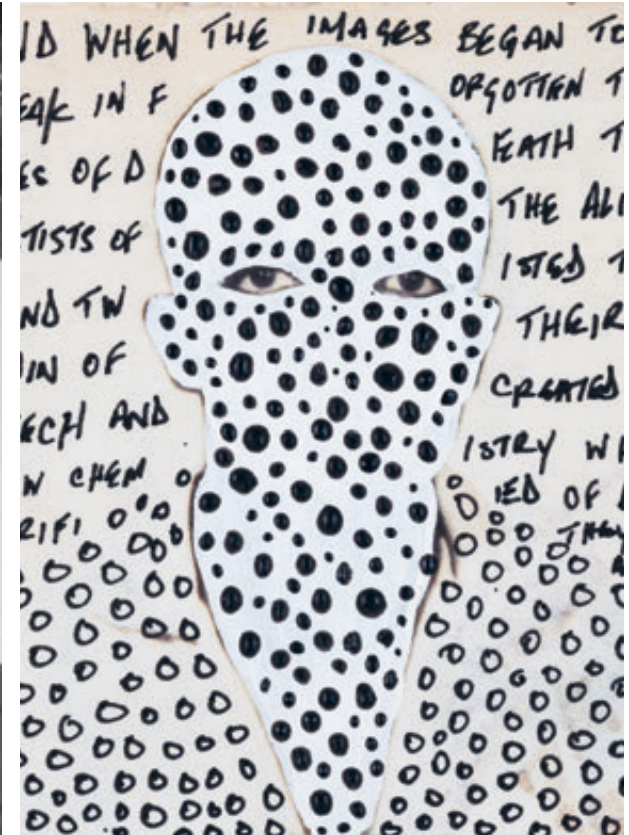 ND WHEN THE IMAGES BEGAN TO
EAK IN F ORGOTTEN T
ES OF D EATH T
TISTS OF THE ALI
ND TW ISTED T
IN OF THEIR
ECH AND CREATED
W CHEM ISTRY WH
RIFI IED OF D
THEY